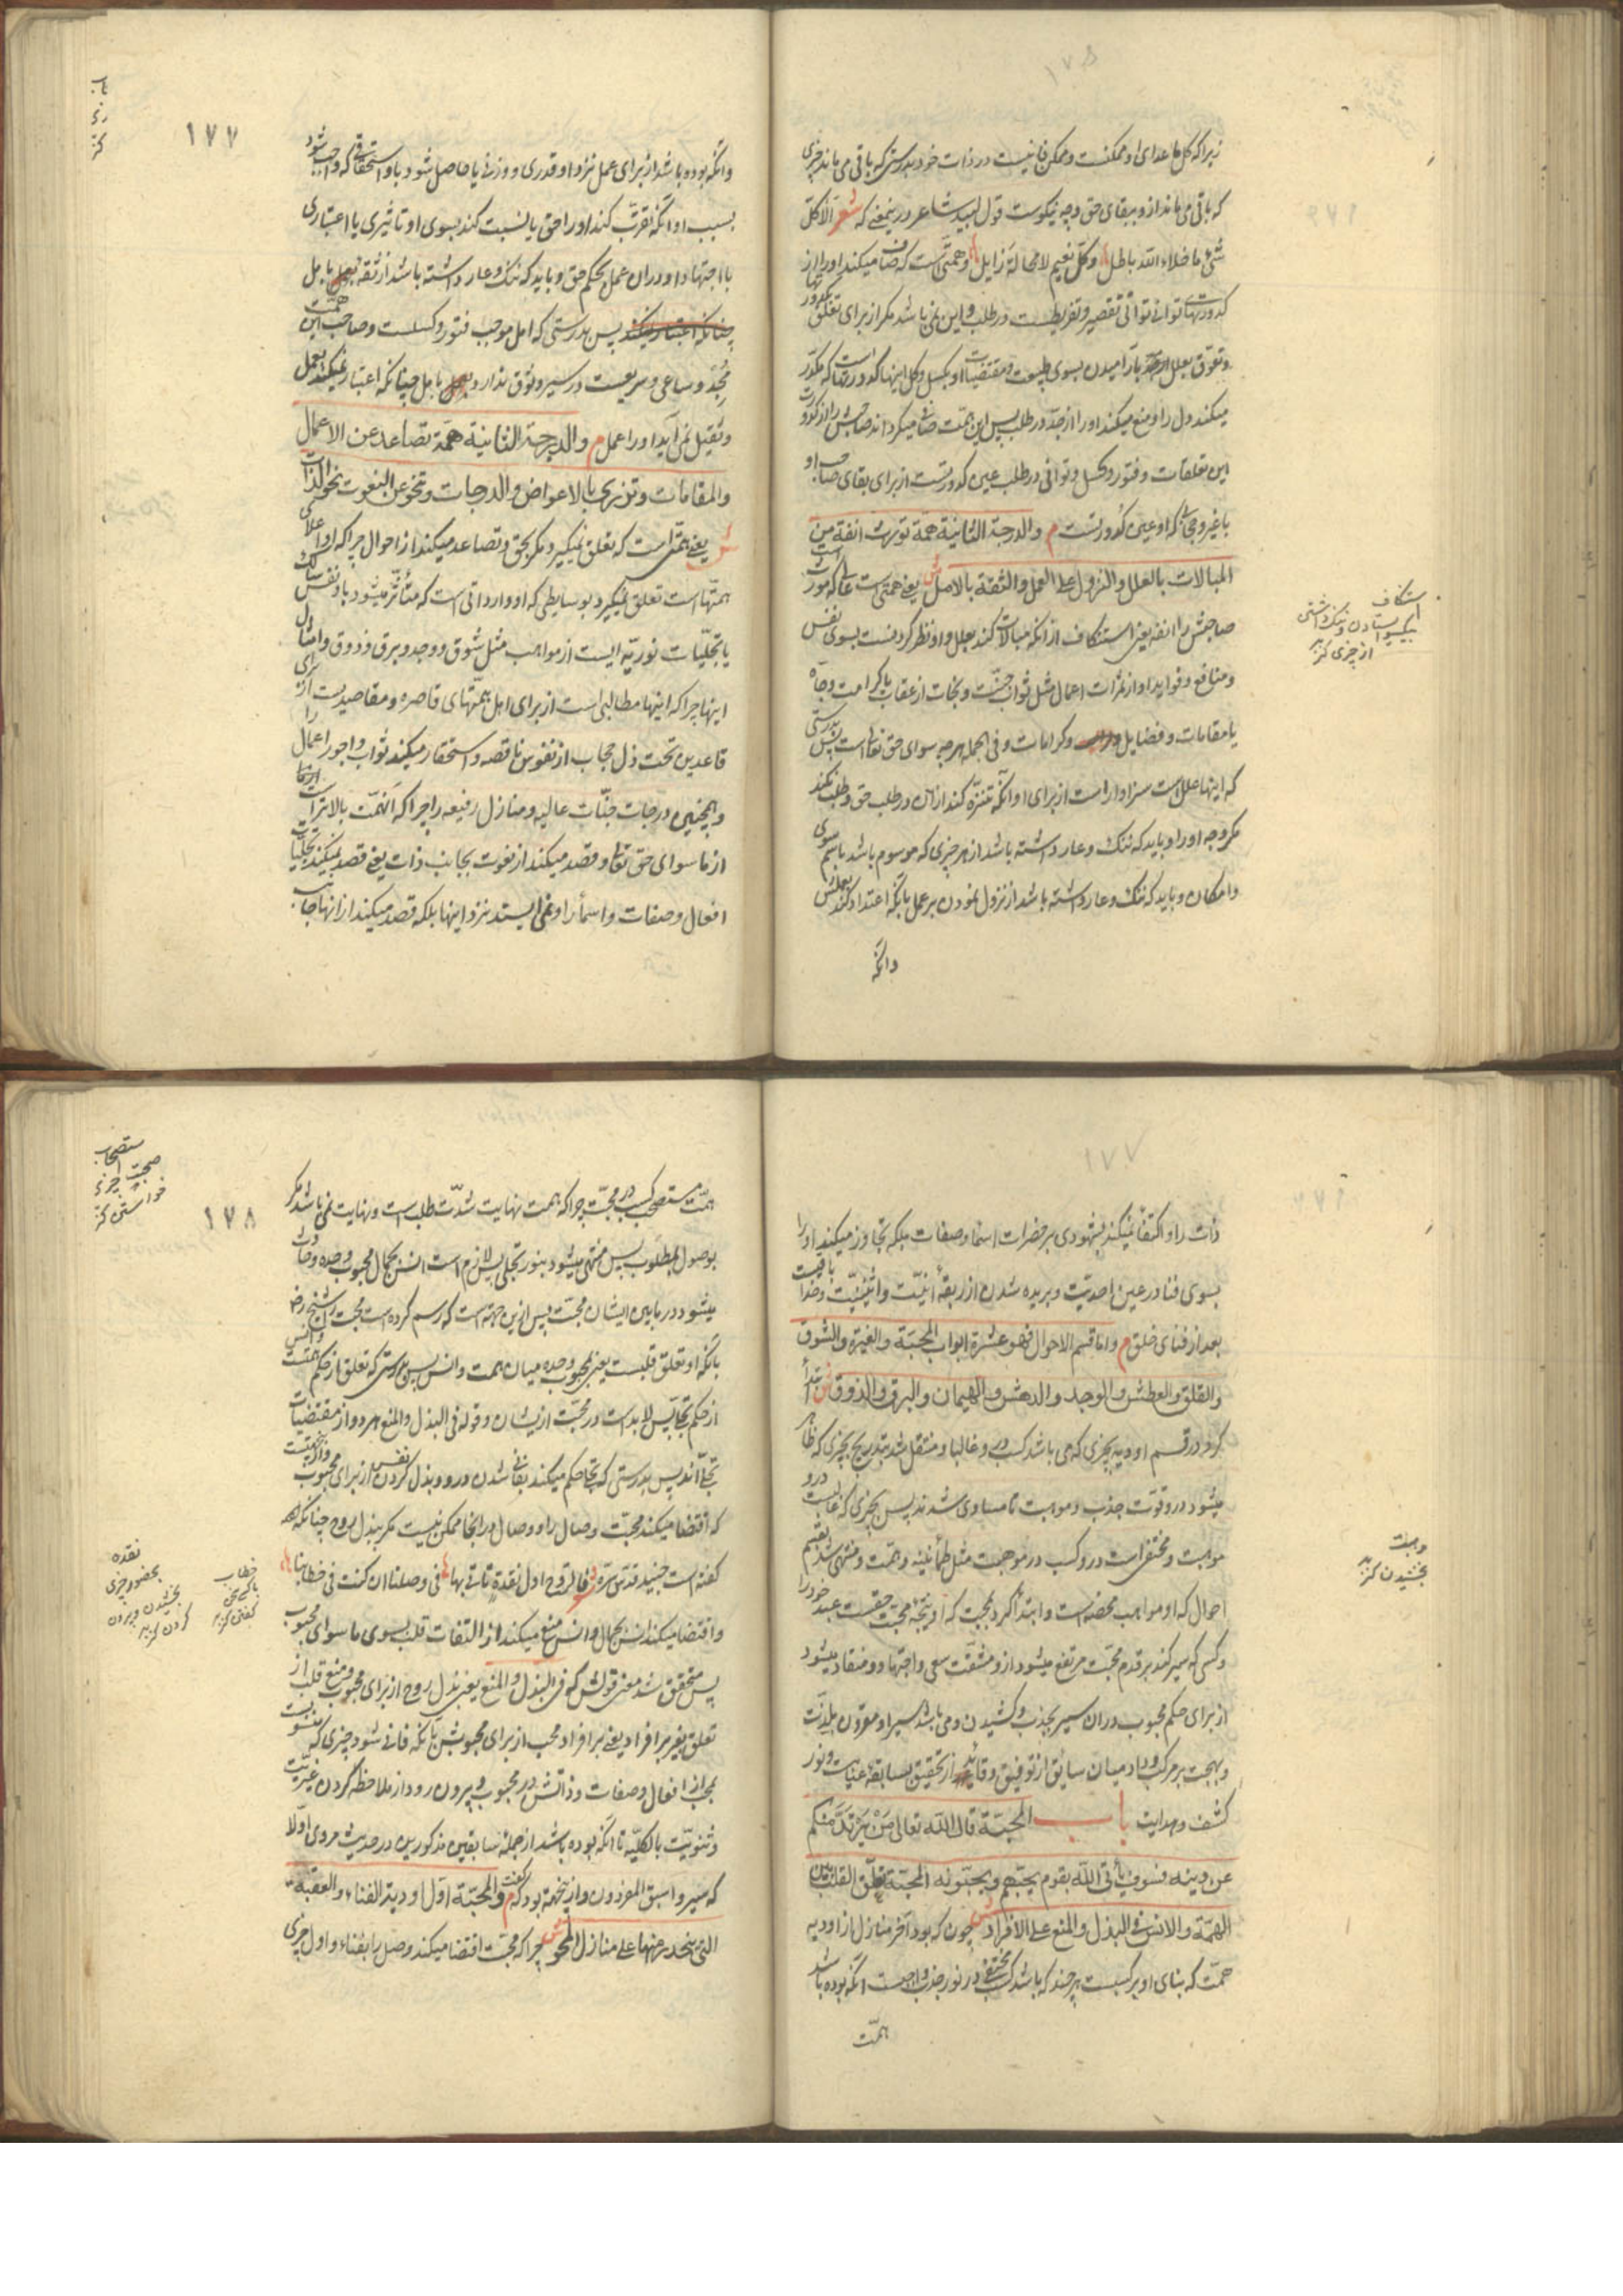 زیرا که کل ما عدای او ممکنست و ممکن فانیست در ذات خود بدرستی که باقی می ماند چیزی
که باقی می ماند از و ببقای حق و چه نیکوست قول لبید شاعر درینمعنی که شعر الا کل
شیء ما خلاء الله باطل وکل نعیم لا محالة زایل و همتی است که صاف میکند او را از
کدورتهای توانی توانی تقصیر و تفریطست در طلب و این نمی باشد مگر از برای تعلق
وتعوق بعلل بآرامیدن بسوی طبیعت و مقتضیات او بکسل وکل اینها کدورتهاست که مکدر
میکند دل را و منع میکند او را از جد در طلب پس این همت صافی میگرداند صاحبش را از کدورت
این تعلقات و فتور و کسل و توانی در طلب عین کدورتست از برای بقای صاحب او
باغیر و حجابی که او عین کدورتست م والدرجة الثانیة همة تورث انفة من
المبالات بالعلل والنزول علی العمل والثقة بالامل ش یعنی همتی است عالی که مورث است
صاحبش را انفه یعنی استنکاف از آنکه مبالات کند بعلل و او نظر کردنست بسوی نفس
ومنافع و فواید او از ثمرات اعمال مثل ثواب جنت و نجات از عقاب یا کرامت وجاه
یا مقامات و فضایل وکرامات و فی الجمله هرچه سوای حق تعالی است پس بدرستی
که اینها علل است سزاوار است از برای او آنکه تنزه کند از آن در طلب حق و طلب نکند
مگر وجه او را و باید که ننگ و عار داشته باشد از هر چیزی که موسوم باشد باسم سوی
وامکان و باید که ننگ و عار داشته باشد از نزول نمودن بر عمل بآنکه اعتداد کند بعملش
وانکه
استنکاف
بیکسو ایستادن و ننگ داشتن
از چیزی کنز
۱۷۷
وانکه بوده باشد از برای عمل نزد او قدری و وزنی یا حاصل شود باو استحقاقی که واجب شود
بسبب او آنکه تقرب کند او را حق یا نسبت کند بسوی او تاثیری یا اعتباری
با اجتهاد او در آن عمل بحکم حق و باید که ننگ و عار داشته باشد از ثقه بامل
پس بدرستی که امل موجب فتور و کسلست و صاحب این همت
مجد و ساعی و سریعست در سیر و وثوق ندارد بامل چنانکه اعتبار نمیکند بعمل
وثقیل نمی آید او را عمل م والدرجة الثانیة همة تصاعد عن الاعمال
والمقامات وتزری بالاعواض والدرجات وتنحو عن النعوت نحو الذات
ش یعنی همتی است که تعلق نمیگیرد مگر بحق و تصاعد میکند از احوال چرا که او اعلای
همتهاست تعلق نمیگیرد بوسایطی که او وارداتی است که متأثر میشود باو نفس سالک
یا تجلیات نوریه ایست از مواهب مثل شوق و وجد و برق و ذوق و امثال
اینها چرا که اینها مطالبی است از برای اهل همتهای قاصره و مقاصدیست از برای
قاعدین تحت ذل حجاب از نفوس ناقصه و استحقار میکند ثواب و اجور اعمال را
و همچنین درجات جنات عالیه و منازل رفیعه را چرا که آنهمت بالاتر است
از ما سوای حق تعالی و قصد میکند از نعوت بجانب ذات یعنی قصد نمیکند تجلیات
افعال وصفات واسما را و نمی ایستد نزد اینها بلکه قصد میکند از آنها جانب
ذات را و اکتفا نمیکند بشهودی بر حضرات اسما وصفات بلکه تجاوز میکند او را
بسوی فنا در عین احدیت و بریده شدن از ربقه انیت و اثنینیت و خدا باقیست
بعد از فنای خلق م واما قسم الاحوال فهو عشرة ابواب المحبة والغیرة والشوق
والقلق والعطش والوجد والدهش والهیمان والبرق والذوق ش ابتدا
کرد در قسم اودیه بچیزی که می باشد کسب درو غالبا و منتقل شد بتدریج بچیزی که ظاهر
میشود درو قوت جذب و موهبت تا مساوی شدند پس بچیزی که غالبست درو
موهبت و مختفی است درو کسب در موهبت مثل طمأنینه و همت و منتهی شد بقسم
احوال که او مواهب محضه است و ابتدا کرد بمحبت که او نتیجهٔ محبت حقست عبد خود را
و کسی که سیر کند بر قدم محبت مرتفع میشود از و مشقت سعی و اجتهاد و منقاد میشود
از برای حکم محبوب در آن سیر بجذب و کشیدن و می باشد سیر او مقرون بلذت
وبهجت بر مرکب وداد میان سایق از توفیق و قاید از تحقیق بسابقهٔ عنایت و نور
کشف و هدایت باب المحبة قال الله تعالی من یرتد منکم
عن دینه فسوف یأتی الله بقوم یحبهم ویحبونه المحبة تعلق القلب بین
الهمة والانس فی البذل والمنع علی الافراد ش چون که بود آخر منازل از اودیه
همت که بنای او بر کسبست هرچند که باشد کسب مختفی در نور جذب واجبست آنکه بوده باشد
همت
وهبت
بخشیدن کنز
استصحاب
صحبت چیزی
خواستن کنز
۱۷۸
همت مستصحب کسب در محبت چرا که همت نهایت شدت طلب است و نهایت نمی باشد مگر
بوصول بمطلوب پس منتهی میشود بنور تجلی پس لازم است انس بجمال محبوب و حده و حادث
میشود در مابین ایشان محبت پس ازین جهت است که رسم کرده است محبت را شیخ رض
بآنکه او تعلق قلبست یعنی بمحبوب وحده میان همت و انس پس بدرستی که تعلق از حکم همتست و انس
از حکم تجلی پس لابد است در محبت ازیشان و قوله فی البذل والمنع هر دو از مقتضیات
تجلی اند پس بدرستی که تجلی حکم میکند بفانی شدن درو و بذل کردن نفس از برای محبوب
که اقتضا میکند محبت وصال را و وصال در اینجا ممکن نیست مگر ببذل روح چنانکه
گفته است جنید قدس سره شعر فالروح اول نقدة تأتی بها فی وصلنا ان کنت فی خطابنا
واقتضا میکند انس بجمال و انس منع میکند از التفات قلب بسوی ما سوای محبوب
پس متحقق شد معنی قولش که فی البذل والمنع یعنی بذل روح از برای محبوب و منع قلب از
تعلق بغیر بر افراد یعنی بر افراد محب از برای محبوبش بآنکه فانی شود چیزی که منسوبست
بمحب از افعال وصفات وذاتش در محبوب و بیرون رود از ملاحظه کردن غیریت
وثنویت بالکلیه تا آنکه بوده باشد از جملهٔ سابقین مذکورین در حدیث مروی اولا
که سیروا سبق المفردون واز ینجهة بود که گفت م والمحبة اول اودیة الفناء والعقبة
التی ینحدر منها علی منازل المحو ش چرا که محبت اقتضا میکند وصل را بفناء و اول چیزی
خطاب
با کسی سخن
گفتن کنز
نقده
بحضور چیزی
بخشیدن و بیرون
کردن کنز